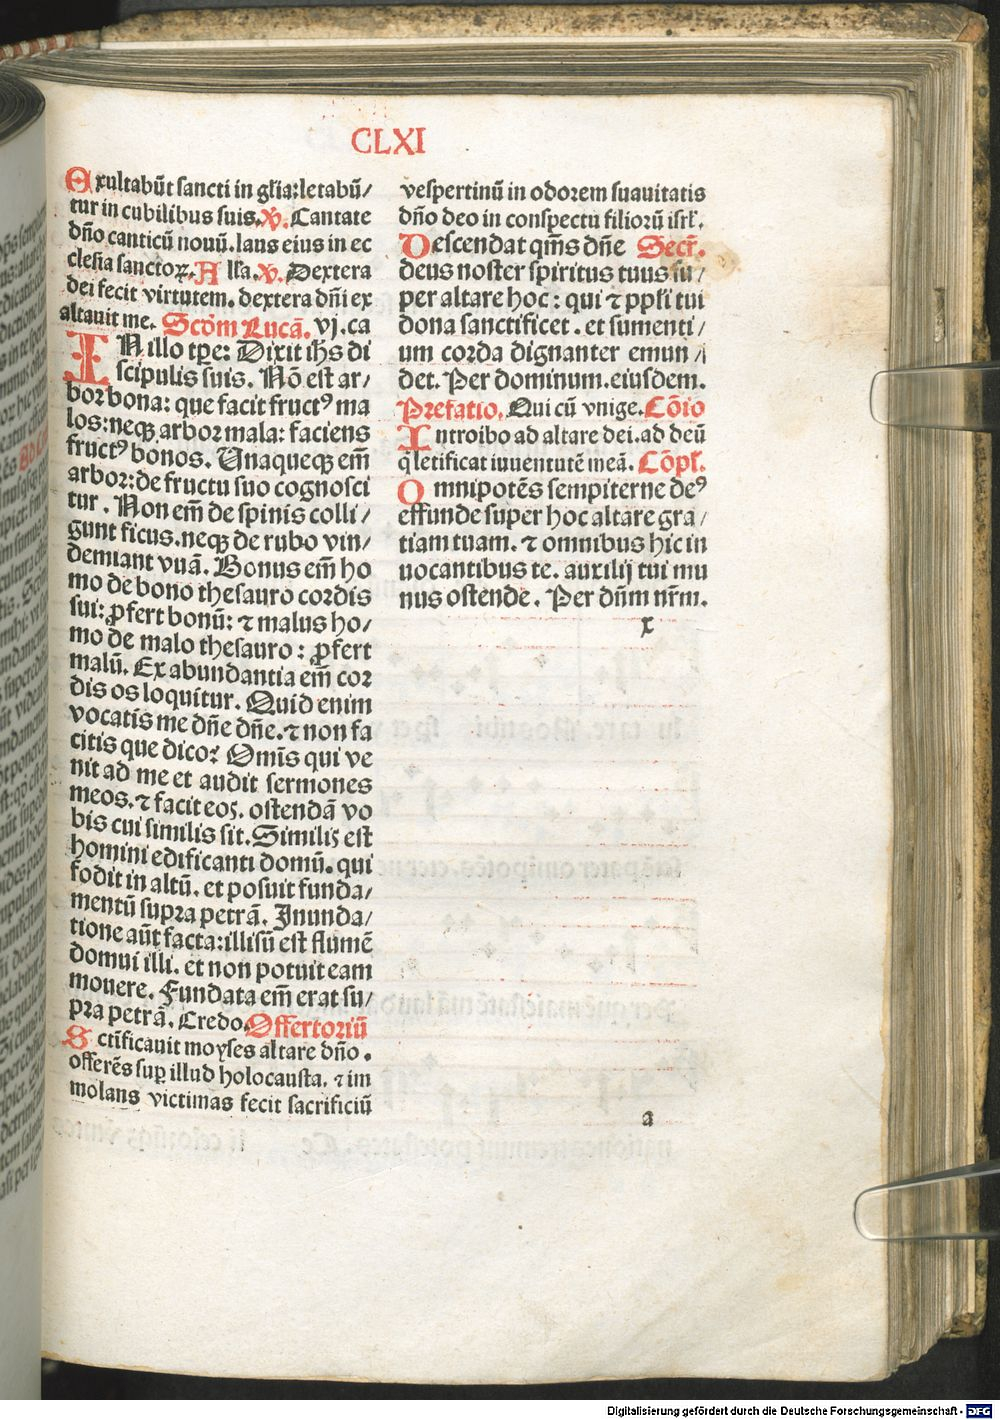 CLXI
Exultabūt sancti in gl̄ia: letabū/
tur in cubilibus suis. ℣. Cantate
dn̄o canticū nouū. laus eius in ec
clesia sanctoꝝ. A ll̄a. ℣. Dextera
dei fecit virtutem. dextera dn̄i ex
altauit me. Scd̄m Lucā. vj. ca
IN illo tp̄e: Dixit ih̄s di
scipulis suis. Nō est ar/
bor bona: que facit fructꝰ ma
los: neqꝫ arbor mala: faciens
fructꝰ bonos. Unaqueqꝫ em̄
arbor: de fructu suo cognosci
tur. Non em̄ de spinis colli/
gunt ficus. neqꝫ de rubo vin/
demiant vuā. Bonus em̄ ho
mo de bono thesauro cordis
sui: ꝓfert bonū: ⁊ malus ho/
mo de malo thesauro: ꝓfert
malū. Ex abundantia em̄ cor
dis os loquitur. Quid enim
vocatis me dn̄e dn̄e. ⁊ non fa
citis que dico? Om̄is qui ve
nit ad me et audit sermones
meos. ⁊ facit eos. ostendā vo
bis cui similis sit. Similis est
homini edificanti domū. qui
fodit in altū. et posuit funda/
mentū supra petrā. Inunda/
tione aūt facta: illisū est flumē
domui illi. et non potuit eam
mouere. Fundata em̄ erat su/
pra petrā. Credo. Offertoriū
Sctīficauit moyses altare dn̄o.
offerēs suꝑ illud holocausta. ⁊ im
molans victimas fecit sacrificiū
vespertinū in odorem suauitatis
dn̄o deo in conspectu filiorū isrl̄.
Descendat qm̄s dn̄e Secr̄.
deus noster spiritus tuus su/
per altare hoc: qui ⁊ ppl̄i tui
dona sanctificet. et sumenti/
um corda dignanter emun/
det. Per dominum. eiusdem.
Prefatio. Qui cū vnige. Cōio
Introibo ad altare dei. ad deū
q̄ letificat iuuentutē meā. Cōpl̄.
Omnipotēs sempiterne deꝰ
effunde super hoc altare gra/
tiam tuam. ⁊ omnibus hic in
uocantibus te. auxilij tui mu
nus ostende. Per dn̄m nr̄m.
x
a
Digitalisierung gefördert durch die Deutsche Forschungsgemeinschaft - DFG